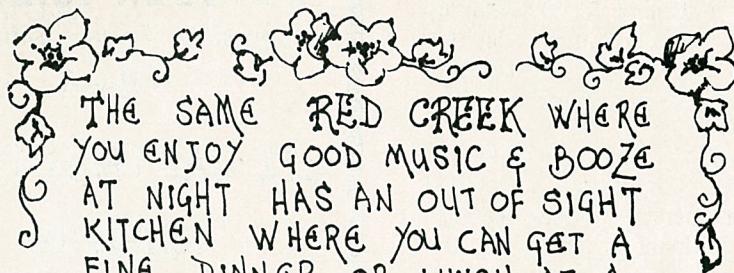 THE SAME RED CREEK WHERE
YOU ENJOY GOOD MUSIC & BOOZE
AT NIGHT HAS AN OUT OF SIGHT
KITCHEN WHERE YOU CAN GET A
FINE DINNER OR LUNCH AT A